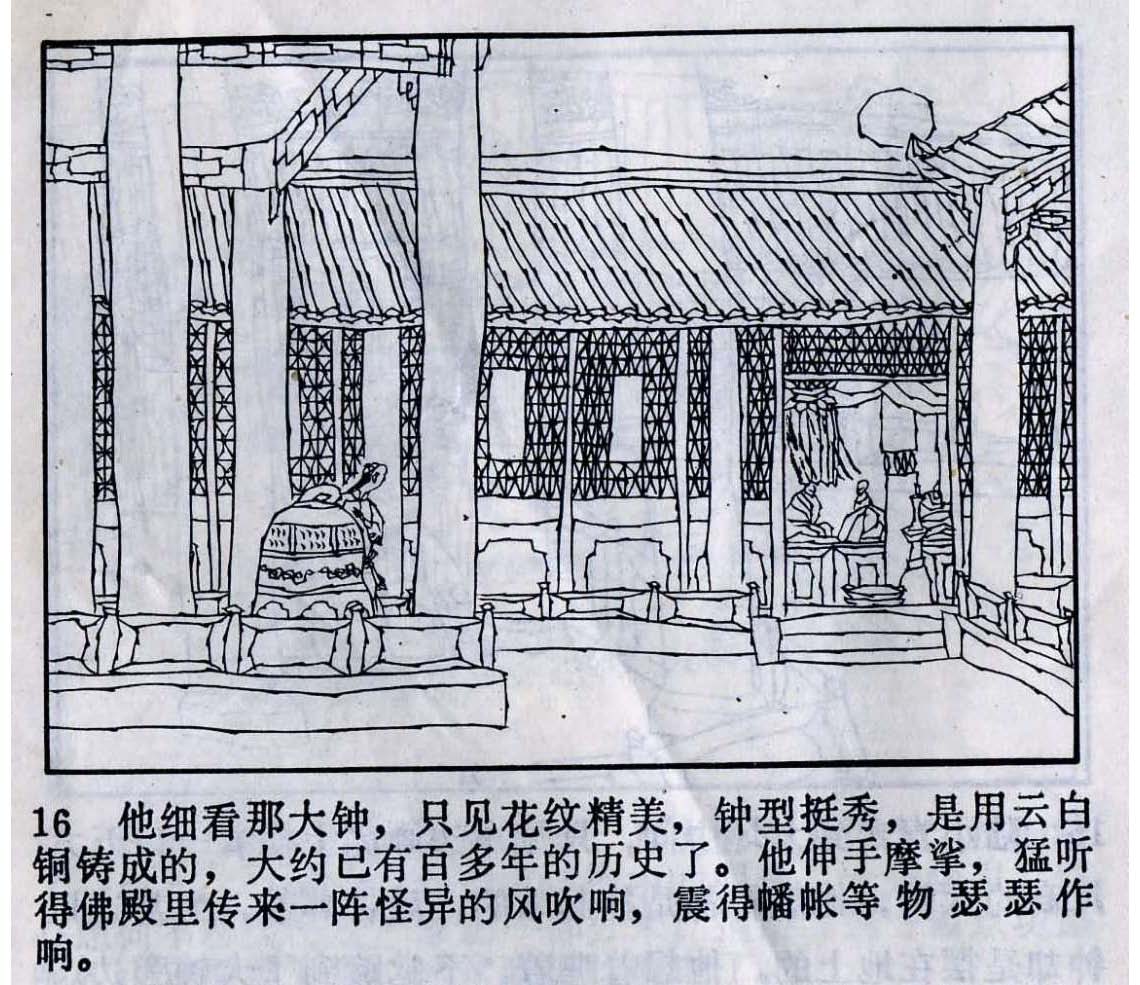 16 他细看那大钟，只见花纹精美，钟型挺秀，是用云白
铜铸成的，大约已有百多年的历史了。他伸手摩挲，猛听
得佛殿里传来一阵怪异的风吹响，震得幡帐等物瑟瑟作
响。